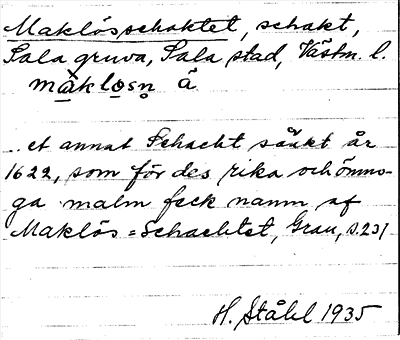 Maklösschaktet, schakt,
Sala gruva, Sala stad, Västm. l.
màklo̱sn̥ ä
.. et annat Schacht sänkt år
1622, som för des rika och ömno-
ga malm feck namn af
Maklös=Schachtet, Grau, s.231
H. Ståhl 1935